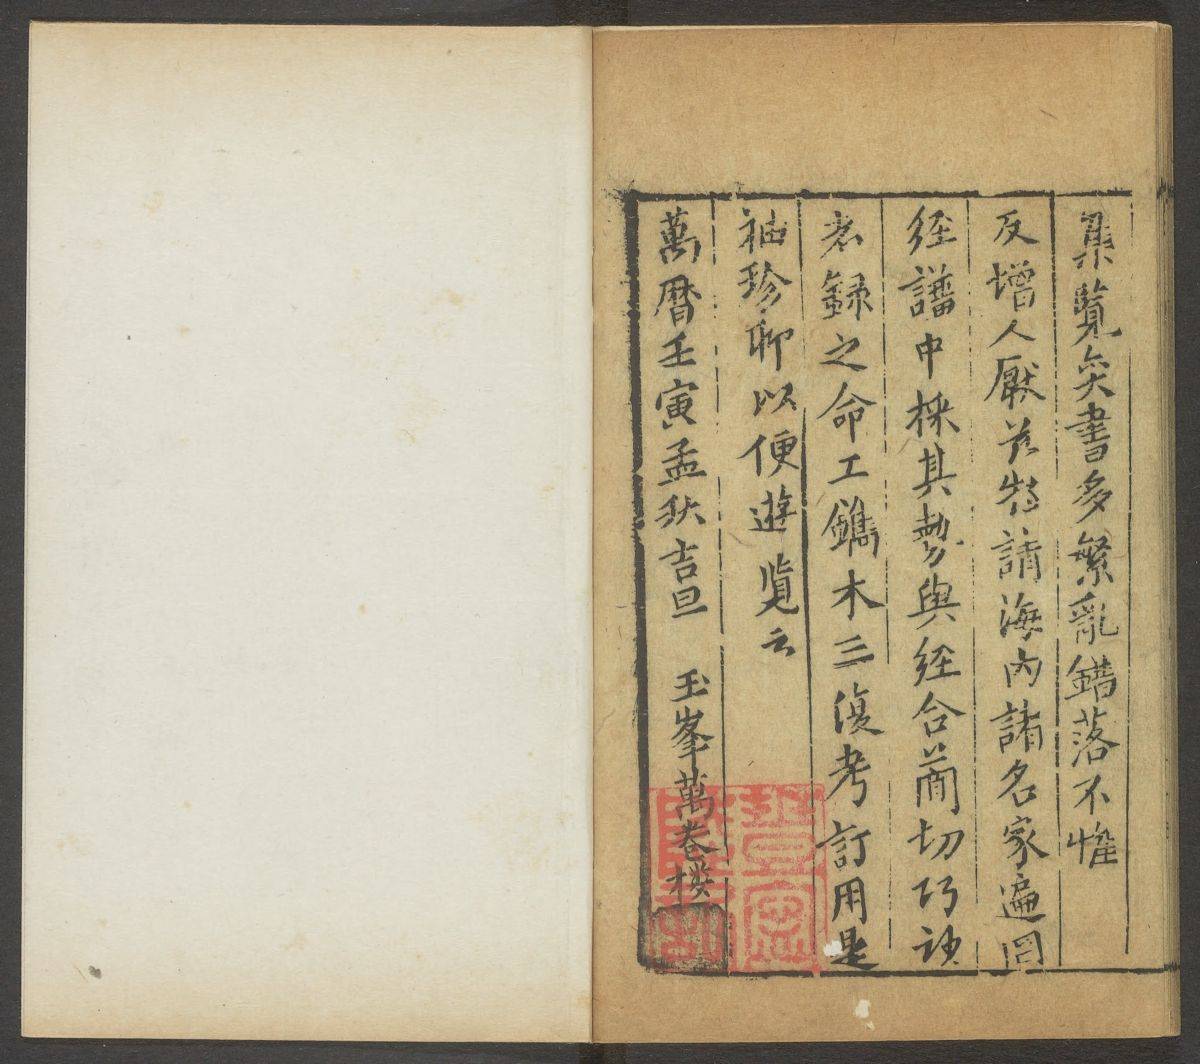 集覧奕書多繁亂錯落不惟
反增人厭茲特請海內諸名家遍囙
經譜中採其勢與經合簡切巧神
者録之命工鐫木三復考訂用是
袖珍聊以便遊覧云
萬曆壬寅孟秋吉旦 玉峯萬巻樓